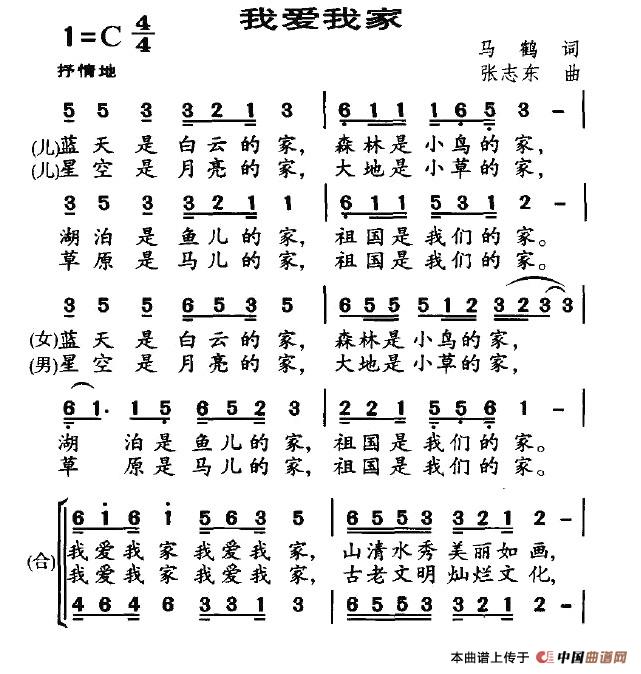 我爱我家
1=C 4/4
马鹤 词
抒情地
张志东 曲
5 5 3 3 2 1 3 | 6 1 1 1 6 5 3 - |
(儿)蓝天是白云的家, 森林是小鸟的家,
(儿)星空是月亮的家, 大地是小草的家,
3 5 3 3 2 1 1 | 6 1 1 5 3 1 2 - |
湖泊是鱼儿的家, 祖国是我们的家。
草原是马儿的家, 祖国是我们的家。
3 5 5 6 5 3 5 | 6 5 5 5 5 1 2 3 2 3 3 |
(女)蓝天是白云的家, 森林是小鸟的家,
(男)星空是月亮的家, 大地是小草的家,
6 1· 1 5 6 5 2 3 | 2 2 1 5 5 6 1 - |
湖泊是鱼儿的家, 祖国是我们的家。
草原是马儿的家, 祖国是我们的家。
6 1 6 1 5 6 3 5 | 6 5 5 3 3 2 1 2 - |
(合) 我爱我家我爱我家, 山清水秀美丽如画,
我爱我家我爱我家, 古老文明灿烂文化,
4 6 4 6 3 3 1 3 | 6 5 5 3 3 2 1 2 - |
本曲谱上传于 中国曲谱网